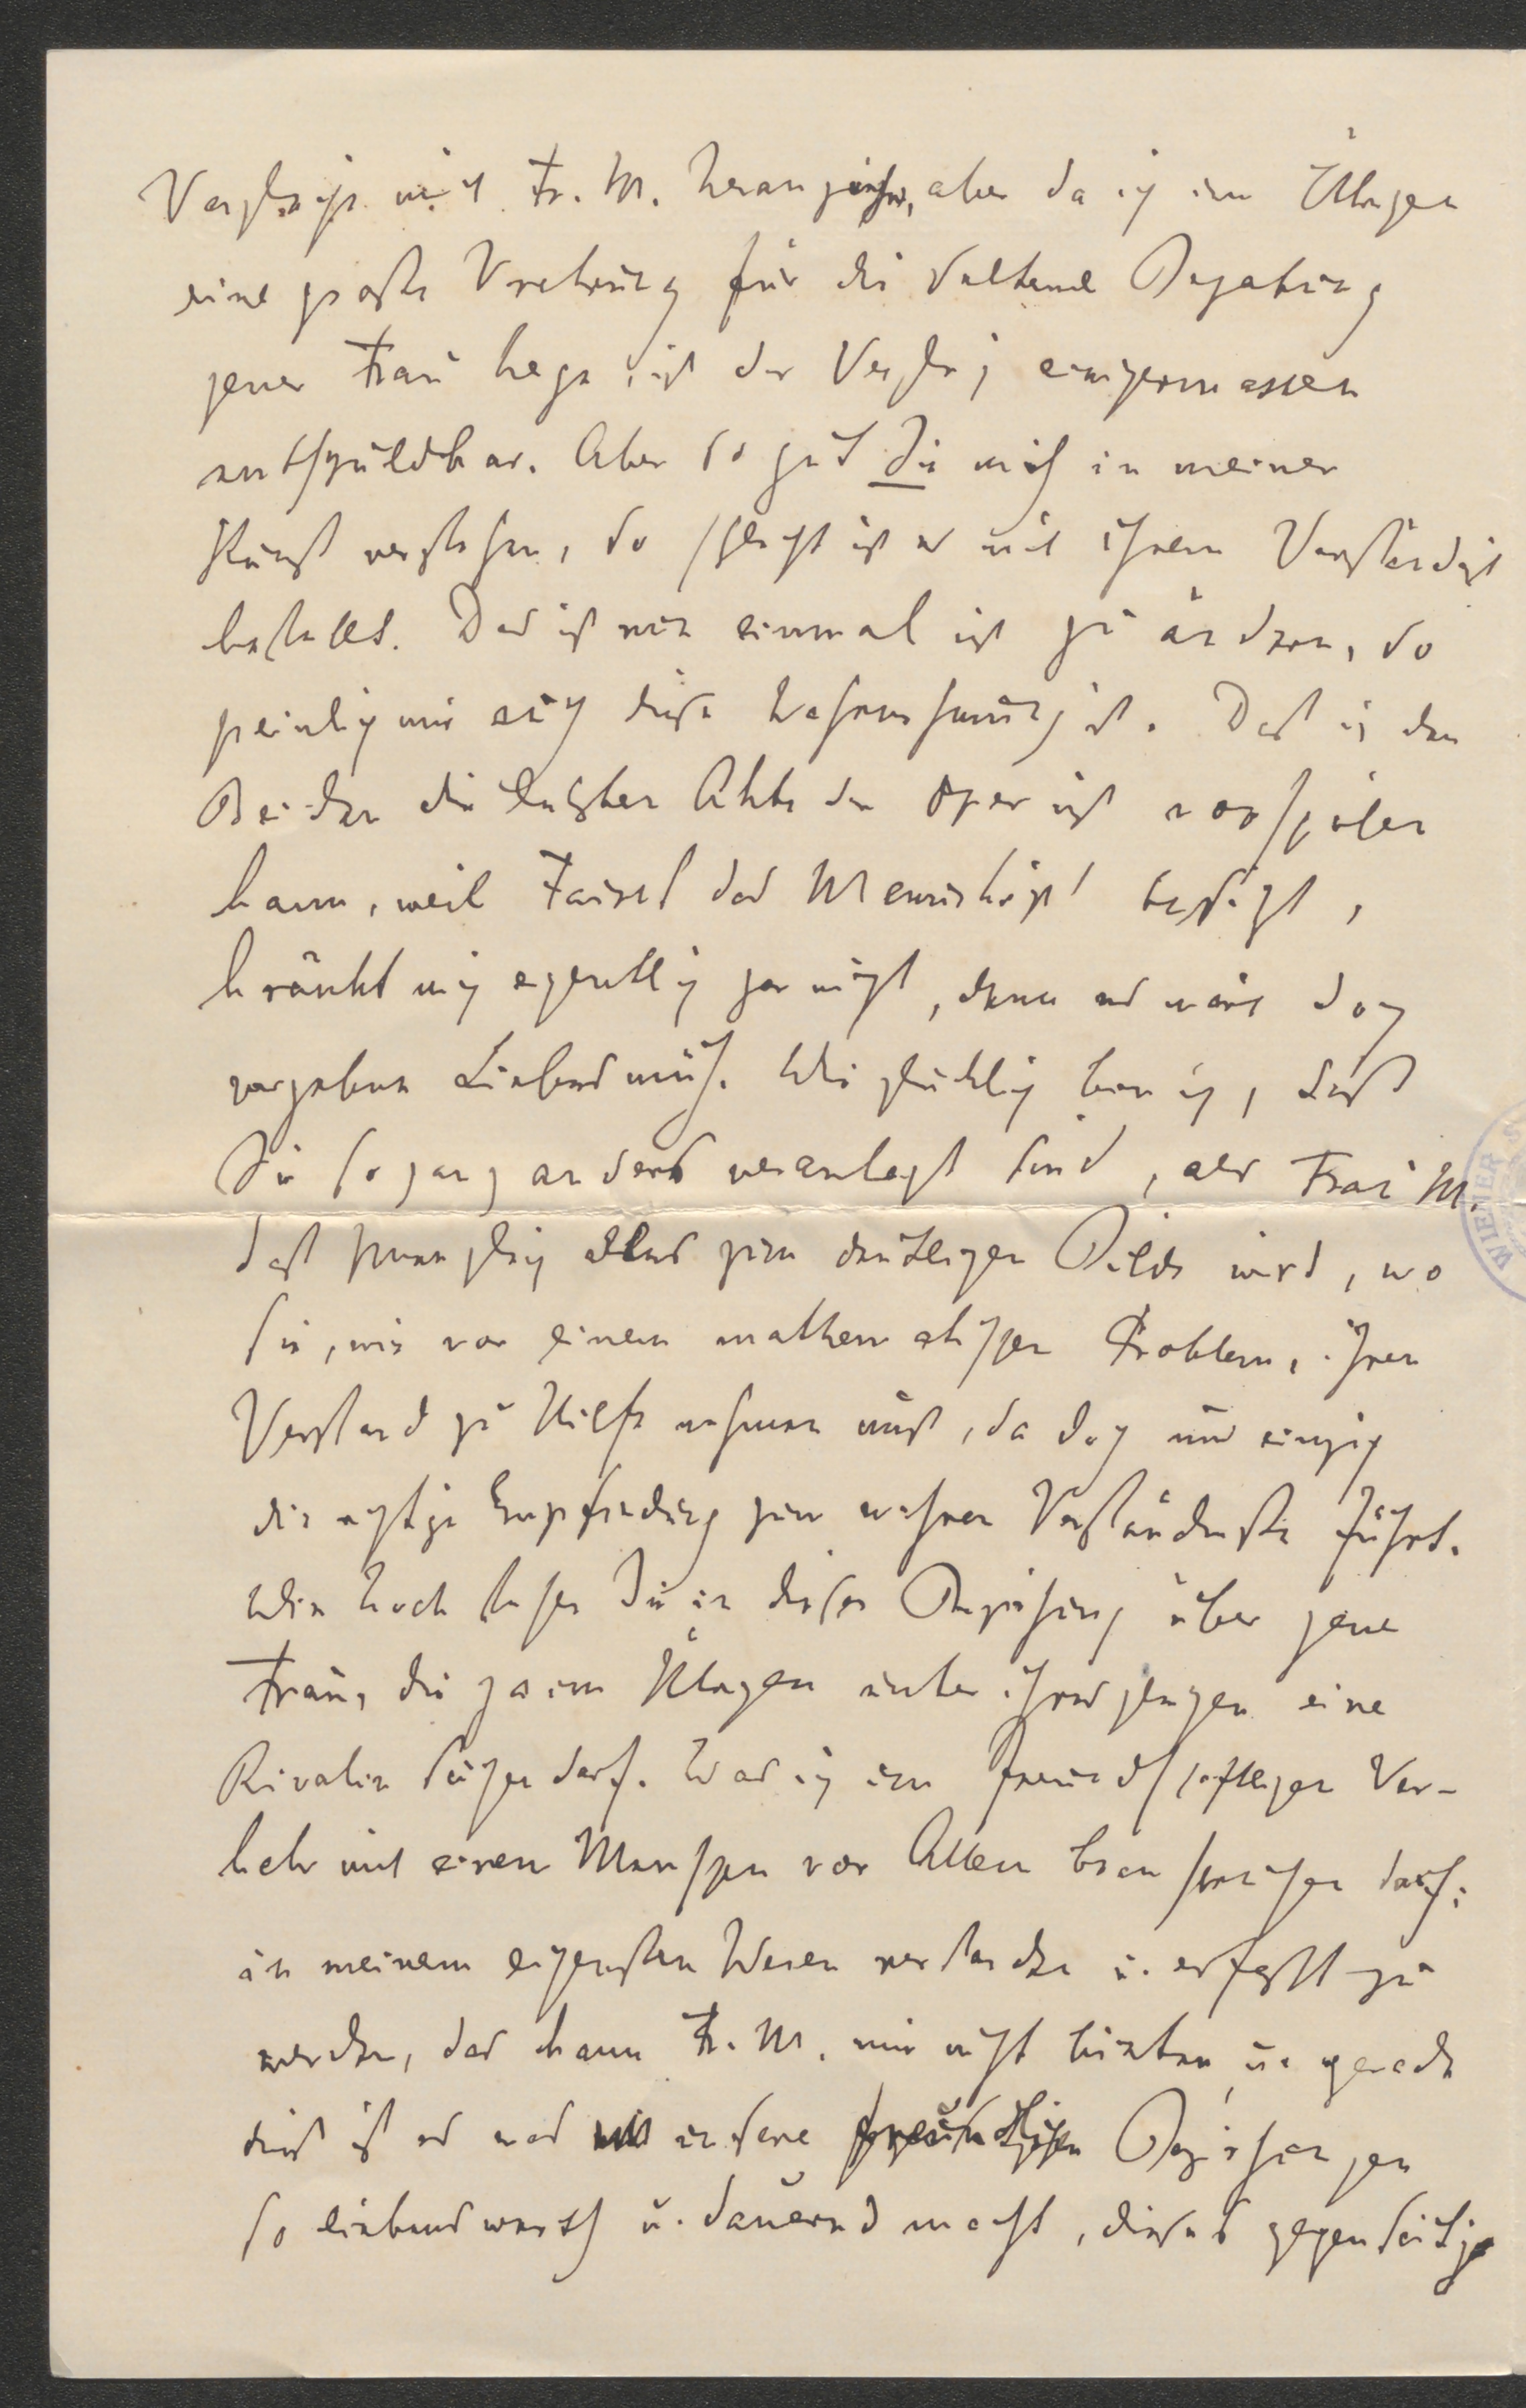 Vergleiche mit Fr. M. heranziehe, aber da ich im Übrigen
eine große Verehrung für die seltene Begabung
jener Frau hege, ist der Vergleich einigermassen
entschuldbar. Aber so gut Sie mich in meiner
Kunst verstehen, so schlecht ist es mit ihrem Verständnis
bestellt. Das ist nun einmal nicht zu ändern, so
peinlich mir auch diese Wahrnehmung ist. Daß ich den
Beiden die letzten Akte der Oper nicht vorspielen
kann, weil Faisst das Manuskript besitzt,
kränkt mich eigentlich gar nicht, denn es wäre doch
vergebene Liebesmüh. Wie glücklich bin ich, daß
Sie so ganz anders veranlagt sind, als Frau M.
daß Ihnen gleich alles zum deutlichen Bilde wird, wo
sie, wie vor einem mathematischen Problem, ihren
Verstand zu Hilfe nehmen muß, da doch nur einzig
die richtige Empfindung zum wahren Verständniße führt.
Wie hoch stehen Sie in dieser Beziehung über jene
Frau, die ja im Übrigen unter ihresgleichen eine
Rivalin suchen darf. Was ich im freundschaftlichen Ver-
kehr mit einem Menschen vor Allem beanspruchen darf:
in meinem eigensten Wesen verstanden u. erfaßt zu
werden, das kann Fr. M. mir nicht bieten u. gerade
dies ist es was unsere freundlichen Beziehungen
so liebenswerth u. dauernd macht, dieses gegenseitige
WIENER S